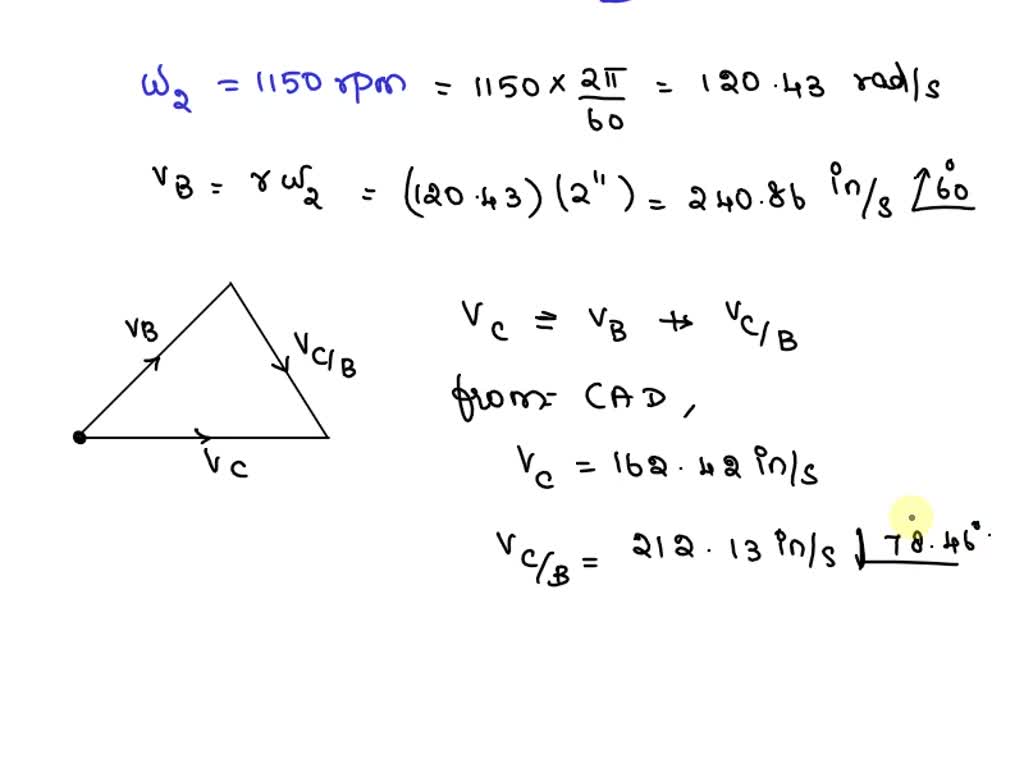 ω₂ = 1150 rpm = 1150 × 2π/60 = 120.43 rad/s
V_B = r ω₂ = (120.43)(2") = 240.86 in/s ↑60°
V_B
V_C/B
V_C
V_C = V_B +> V_C/B
from CAD,
V_C = 162.42 in/s
V_C/B = 212.13 in/s ↓78.46°